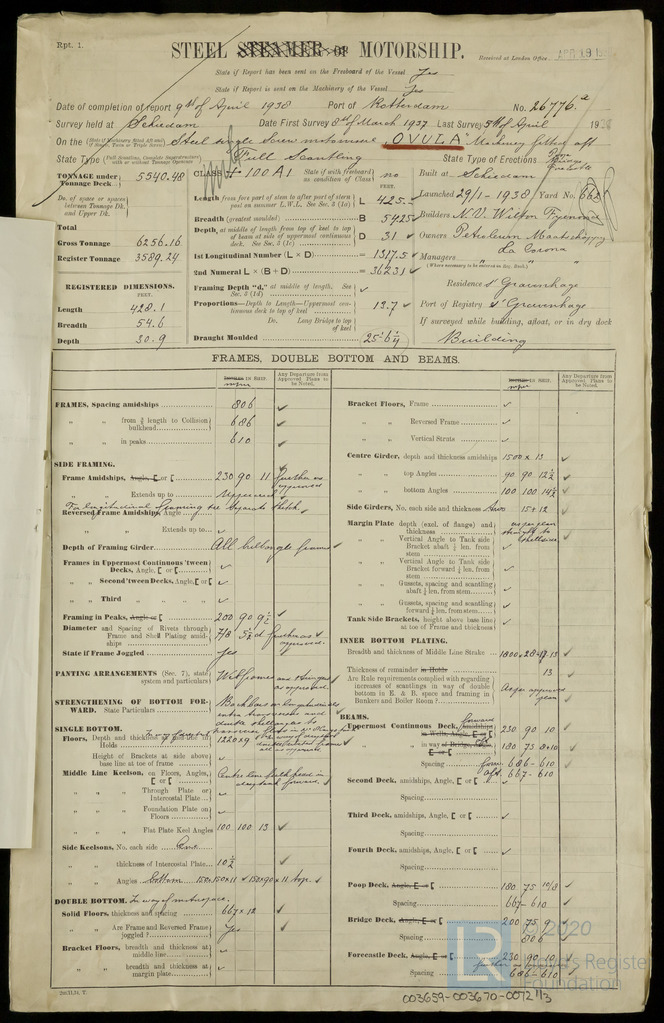 Rpt. 1.
STEEL STEAMER OR MOTORSHIP.
Received at London Office
State if Report has been sent on the Freeboard of the Vessel Yes
State if Report is sent on the Machinery of the Vessel Yes
Date of completion of report 9th of April 1938 Port of Rotterdam No. 26776
Survey held at Schiedam Date First Survey 8th of March 1937 Last Survey 5th of April 1938
On the Steel single screw motorvessel "OVULA" Machinery fitted aft
State Type Full Scantling State Type of Erections Poop Bridge Forecastle
TONNAGE under Tonnage Deck 5540.48
CLASS + 100 A1 State if with freeboard as condition of Class no
Built at Schiedam
Do. of space or spaces between Tonnage Dk. and Upper Dk.
Total
Gross Tonnage 6256.16
Register Tonnage 3589.24
REGISTERED DIMENSIONS.
FEET.
Length 428.1
Breadth 54.6
Depth 30.9
Length from fore part of stem to after part of stern post on summer L.W.L. See Sec. 3 (1a) L 425
Breadth (greatest moulded) B 5425
Depth, at middle of length from top of keel to top of beam at side of uppermost continuous deck. See Sec. 3 (1c) D 31
1st Longitudinal Number (L × D) = 13175
2nd Numeral L × (B + D) = 36231
Framing Depth "d," at middle of length. See Sec. 3 (1d)
Proportions—Depth to Length—Uppermost continuous deck to top of keel 13.7
Do. Long Bridge to top of keel
Draught Moulded
Launched 29/1-1938 Yard No. 662
Builders N.V. Wilton Fijenoord
Owners Petroleum Maatschappij La Corona
Managers
(Where necessary to be entered in Reg. Book.)
Residence s' Gravenhage
Port of Registry s' Gravenhage
If surveyed while building, afloat, or in dry dock
Building
FRAMES, DOUBLE BOTTOM AND BEAMS.
Any Departure from Approved Plans to be Noted.
FRAMES, Spacing amidships 806
" " from ⅕ length to Collision bulkhead 686
" " in peaks 610
SIDE FRAMING.
Frame Amidships, Angle, [ or [ 230 90 11 further as approved
" " Extends up to
For longitudinal framing see separate sketch.
Reversed Frame Amidships, Angle
" " Extends up to
Depth of Framing Girder
Frames in Uppermost Continuous 'tween Decks, Angle, [ or [
" " Second 'tween Decks, Angle, [ or [
" " Third " " " "
Framing in Peaks, Angle or [ 200 90 9½
Diameter and Spacing of Rivets through Frame and Shell Plating amidships 7/8 5½d further as approved.
State if Frame Joggled yes
PANTING ARRANGEMENTS (Sec. 7), state system and particulars
STRENGTHENING OF BOTTOM FORWARD. State Particulars
SINGLE BOTTOM.
Floors, Depth and thickness Holds 1220×9
Height of Brackets at side above base line at toe of frame
Middle Line Keelson, on Floors, Angles, [ or [
" " Through Plate or Intercostal Plate
" " Foundation Plate on Floors
" " Flat Plate Keel Angles 100 100 13
Side Keelsons, No. each side One
" " thickness of Intercostal Plate 10½
" " Angles bottom 150×150×11 150×90×11 top
DOUBLE BOTTOM. In way of motorspace.
Solid Floors, thickness and spacing 667×12
" " Are Frame and Reversed Frame joggled? Yes
Bracket Floors, breadth and thickness at middle line
" " breadth and thickness at margin plate
Any Departure from Approved Plans to be Noted.
Bracket Floors, Frame
" " Reversed Frame
" " Vertical Struts
Centre Girder, depth and thickness amidships 1500×13
" " top Angles 90 90 12½
" " bottom Angles 100 100 14½
Side Girders, No. each side and thickness two 15+12
Margin Plate depth (excl. of flange) and thickness as per plan straight to shellside
" " Vertical Angle to Tank side Bracket abaft ¼ len. from stem
" " Vertical Angle to Tank side Bracket forward ¼ len. from stem
" " Gussets, spacing and scantling abaft ¼ len. from stem
" " Gussets, spacing and scantling forward ¼ len. from stem
Tank Side Brackets, height above base line at toe of Frame and thickness
INNER BOTTOM PLATING.
Breadth and thickness of Middle Line Strake
Thickness of remainder in Holds 13
Are Rule requirements complied with regarding increases of scantlings in way of double bottom in E. & B. space and framing in Bunkers and Boiler Room? As per approved plan
BEAMS.
Uppermost Continuous Deck, amidships forward 230 90 10
in way of Bridge 180 75
Spacing fore 686-610 aft 667-610
Second Deck, amidships, Angle, [ or [
Spacing
Third Deck, amidships, Angle, [ or [
Spacing
Fourth Deck, amidships, Angle, [ or [
Spacing
Poop Deck, Angle, [ or [ 180 75 10/8
Spacing 667-610
Bridge Deck, Angle, [ or [ 200 75 9
Spacing 806
Forecastle Deck, Angle, [ or [ 230 90 10
Spacing 686-610
© 2020
LR
Lloyd's Register Foundation
003659-003670-0072 1/3